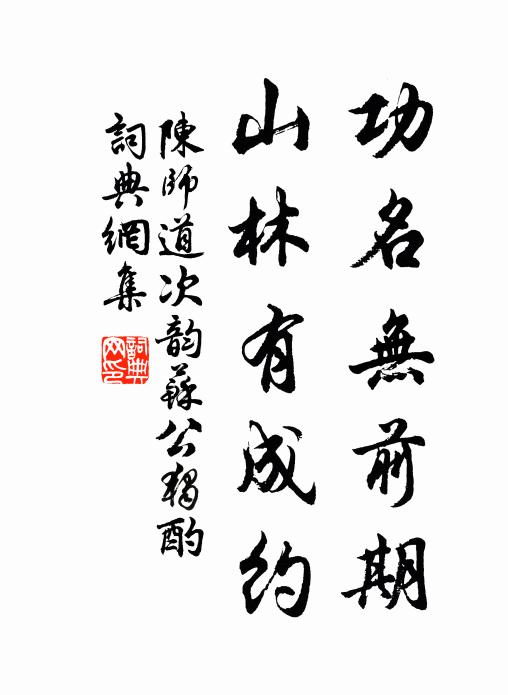 功名無前期
山林有成約
陳師道次韵蘇公獨酌
詞典網集
詞典网印